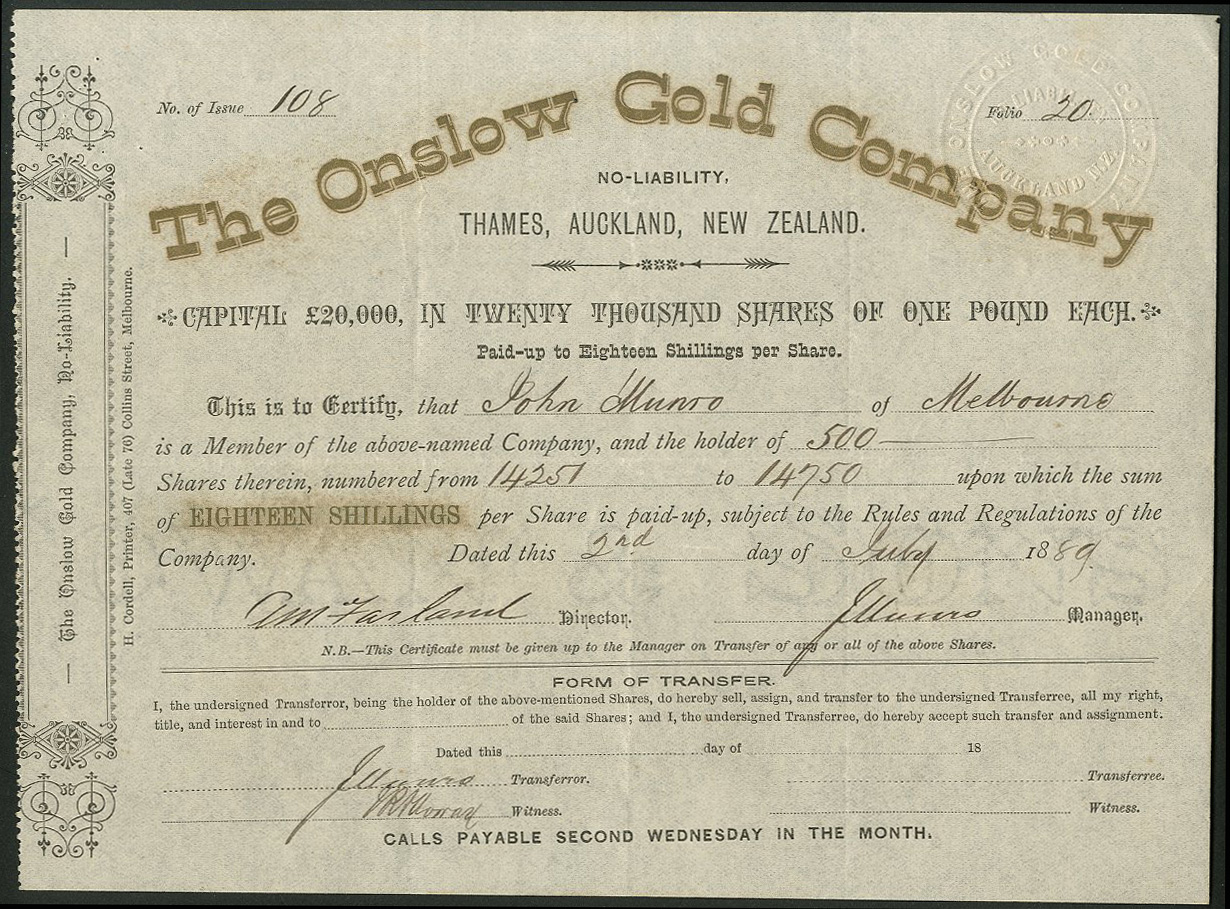 No. of Issue 108
Folio 20
ONSLOW GOLD COMPANY
AUCKLAND N.Z.
The Onslow Gold Company
NO-LIABILITY,
THAMES, AUCKLAND, NEW ZEALAND.
CAPITAL £20,000, IN TWENTY THOUSAND SHARES OF ONE POUND EACH.
Paid-up to Eighteen Shillings per Share.
This is to Certify, that John Munro of Melbourne
is a Member of the above-named Company, and the holder of 500
Shares therein, numbered from 14251 to 14750 upon which the sum
of EIGHTEEN SHILLINGS per Share is paid-up, subject to the Rules and Regulations of the
Company. Dated this 2nd day of July 1889.
Director. JMunro Manager.
N.B.—This Certificate must be given up to the Manager on Transfer of any or all of the above Shares.
FORM OF TRANSFER.
I, the undersigned Transferror, being the holder of the above-mentioned Shares, do hereby sell, assign, and transfer to the undersigned Transferree, all my right,
title, and interest in and to of the said Shares; and I, the undersigned Transferree, do hereby accept such transfer and assignment.
Dated this day of 18
JMunro Transferror. Transferree.
Witness. Witness.
CALLS PAYABLE SECOND WEDNESDAY IN THE MONTH.
— The Onslow Gold Company, No-Liability. —
H. Cordell, Printer, 407 (Late 76) Collins Street, Melbourne.